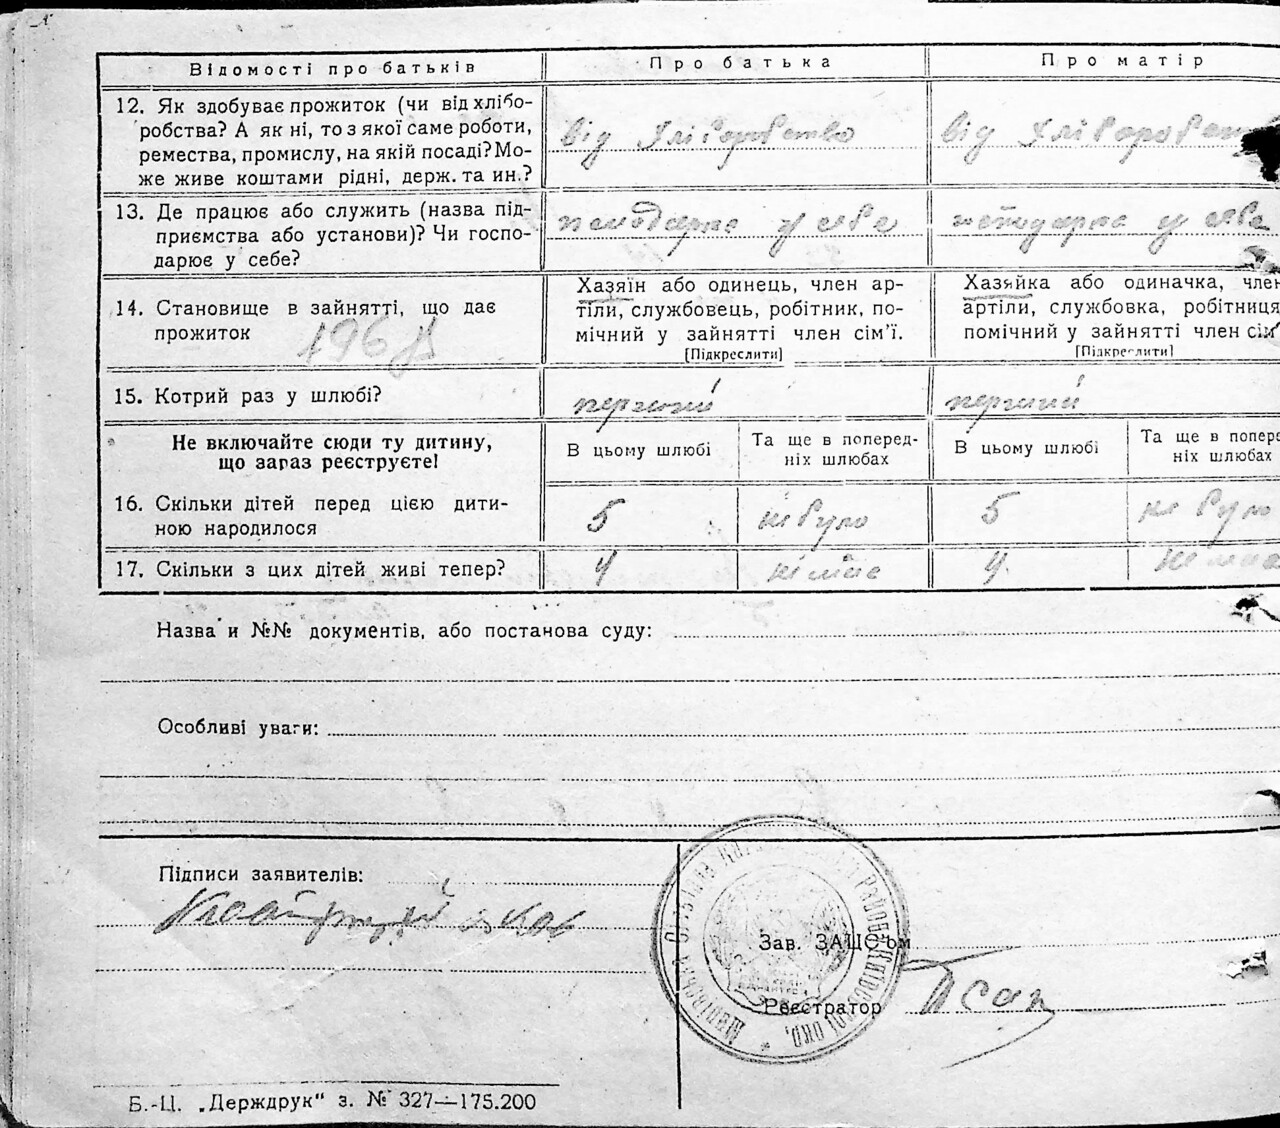 Відомості про батьків
Про батька
Про матір
12. Як здобуває прожиток (чи від хлібо-
робства? А як ні, то з якої саме роботи,
ремества, промислу, на якій посаді? Мо-
же живе коштами рідні, держ. та ин.?
від хліборобство
від
13. Де працює або служить (назва під-
приємства або установи)? Чи госпо-
дарює у себе?
у себе
у себе
14. Становище в зайнятті, що дає
прожиток
196
Хазяїн або одинець, член ар-
тіли, службовець, робітник, по-
мічний у зайнятті член сім'ї.
[Підкреслити]
Хазяйка або одиначка, член
артіли, службовка, робітниця
помічний у зайнятті член сім'
[Підкреслити]
15. Котрий раз у шлюбі?
перший
перший
Не включайте сюди ту дитину,
що зараз реєструєте!
В цьому шлюбі
Та ще в поперед-
ніх шлюбах
В цьому шлюбі
Та ще в попере
ніх шлюбах
16. Скільки дітей перед цією дити-
ною народилося
5
не було
5
не було
17. Скільки з цих дітей живі тепер?
4
немає
4
немає
Назва и №№ документів, або постанова суду:
Особливі уваги:
Підписи заявителів:
Зав. ЗАЦС'ом
Реєстратор
Б.-Ц. „Держдрук" з. № 327—175.200